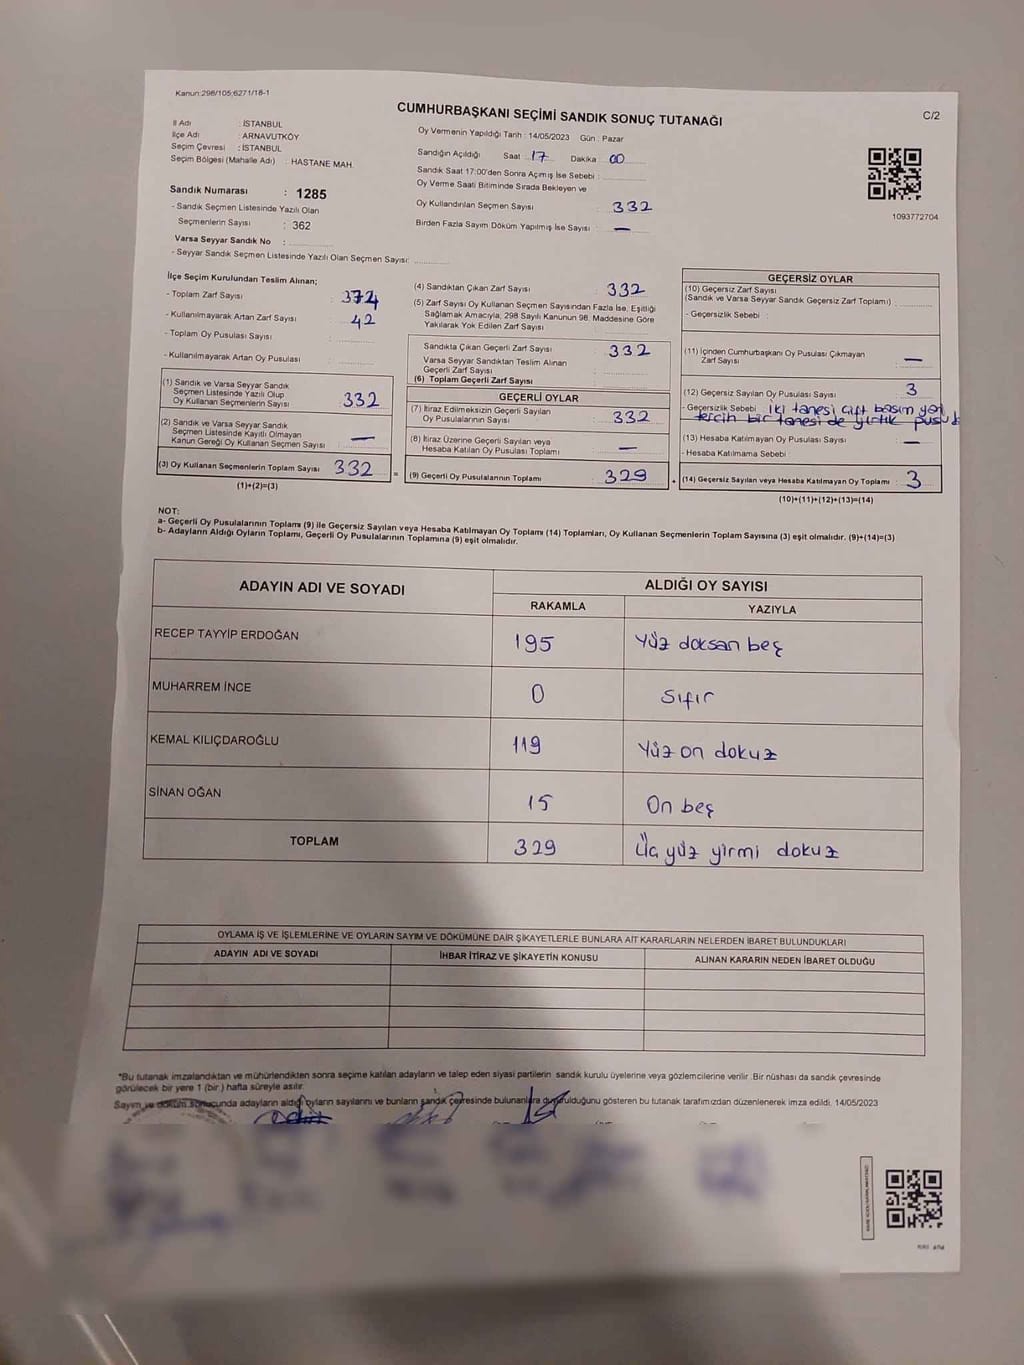 Kanun:298/105;6271/18-1
CUMHURBAŞKANI SEÇİMİ SANDIK SONUÇ TUTANAĞI
C/2
İl Adı : İSTANBUL
İlçe Adı : ARNAVUTKÖY
Seçim Çevresi : İSTANBUL
Seçim Bölgesi (Mahalle Adı) : HASTANE MAH.
Sandık Numarası : 1285
- Sandık Seçmen Listesinde Yazılı Olan
Seçmenlerin Sayısı : 362
Varsa Seyyar Sandık No :
- Seyyar Sandık Seçmen Listesinde Yazılı Olan Seçmen Sayısı:
Oy Vermenin Yapıldığı Tarih : 14/05/2023 Gün : Pazar
Sandığın Açıldığı Saat 17 Dakika 00
Sandık Saat 17:00'den Sonra Açılmış İse Sebebi :
Oy Verme Saati Bitiminde Sırada Bekleyen ve
Oy Kullandırılan Seçmen Sayısı : 332
Birden Fazla Sayım Döküm Yapılmış İse Sayısı : —
1093772704
İlçe Seçim Kurulundan Teslim Alınan;
- Toplam Zarf Sayısı : 374
- Kullanılmayarak Artan Zarf Sayısı : 42
- Toplam Oy Pusulası Sayısı :
- Kullanılmayarak Artan Oy Pusulası :
(1) Sandık ve Varsa Seyyar Sandık
Seçmen Listesinde Yazılı Olup
Oy Kullanan Seçmenlerin Sayısı : 332
(2) Sandık ve Varsa Seyyar Sandık
Seçmen Listesinde Kayıtlı Olmayan
Kanun Gereği Oy Kullanan Seçmen Sayısı : —
(3) Oy Kullanan Seçmenlerin Toplam Sayısı : 332
(1)+(2)=(3)
(4) Sandıktan Çıkan Zarf Sayısı : 332
(5) Zarf Sayısı Oy Kullanan Seçmen Sayısından Fazla İse, Eşitliği
Sağlamak Amacıyla, 298 Sayılı Kanunun 98. Maddesine Göre
Yakılarak Yok Edilen Zarf Sayısı :
Sandıkta Çıkan Geçerli Zarf Sayısı : 332
Varsa Seyyar Sandıktan Teslim Alınan
Geçerli Zarf Sayısı :
(6) Toplam Geçerli Zarf Sayısı :
GEÇERLİ OYLAR
(7) İtiraz Edilmeksizin Geçerli Sayılan
Oy Pusulalarının Sayısı : 332
(8) İtiraz Üzerine Geçerli Sayılan veya
Hesaba Katılan Oy Pusulası Toplamı : —
= (9) Geçerli Oy Pusulalarının Toplamı : 329 +
GEÇERSİZ OYLAR
(10) Geçersiz Zarf Sayısı
(Sandık ve Varsa Seyyar Sandık Geçersiz Zarf Toplamı) :
- Geçersizlik Sebebi :
(11) İçinden Cumhurbaşkanı Oy Pusulası Çıkmayan
Zarf Sayısı : —
(12) Geçersiz Sayılan Oy Pusulası Sayısı : 3
- Geçersizlik Sebebi iki tanesi çift basım yeri
tercih bir tanesi de yırtık pusula
(13) Hesaba Katılmayan Oy Pusulası Sayısı : —
- Hesaba Katılmama Sebebi
(14) Geçersiz Sayılan veya Hesaba Katılmayan Oy Toplamı : 3
(10)+(11)+(12)+(13)=(14)
NOT:
a- Geçerli Oy Pusulalarının Toplamı (9) ile Geçersiz Sayılan veya Hesaba Katılmayan Oy Toplamı (14) Toplamları, Oy Kullanan Seçmenlerin Toplam Sayısına (3) eşit olmalıdır. (9)+(14)=(3)
b- Adayların Aldığı Oyların Toplamı, Geçerli Oy Pusulalarının Toplamına (9) eşit olmalıdır.
ADAYIN ADI VE SOYADI
ALDIĞI OY SAYISI
RAKAMLA YAZIYLA
RECEP TAYYİP ERDOĞAN 195 Yüz doksan beş
MUHARREM İNCE 0 Sıfır
KEMAL KILIÇDAROĞLU 119 Yüz on dokuz
SİNAN OĞAN 15 On beş
TOPLAM 329 Üç yüz yirmi dokuz
OYLAMA İŞ VE İŞLEMLERİNE VE OYLARIN SAYIM VE DÖKÜMÜNE DAİR ŞİKAYETLERLE BUNLARA AİT KARARLARIN NELERDEN İBARET BULUNDUKLARI
ADAYIN ADI VE SOYADI İHBAR İTİRAZ VE ŞİKAYETİN KONUSU ALINAN KARARIN NEDEN İBARET OLDUĞU
*Bu tutanak imzalandıktan ve mühürlendikten sonra seçime katılan adayların ve talep eden siyasi partilerin sandık kurulu üyelerine veya gözlemcilerine verilir .Bir nüshası da sandık çevresinde
görülecek bir yere 1 (bir ) hafta süreyle asılır.
Sayım ve döküm sonucunda adayların aldığı oyların sayılarını ve bunların sandık çevresinde bulunanlara duyurulduğunu gösteren bu tutanak tarafımızdan düzenlenerek imza edildi. 14/05/2023